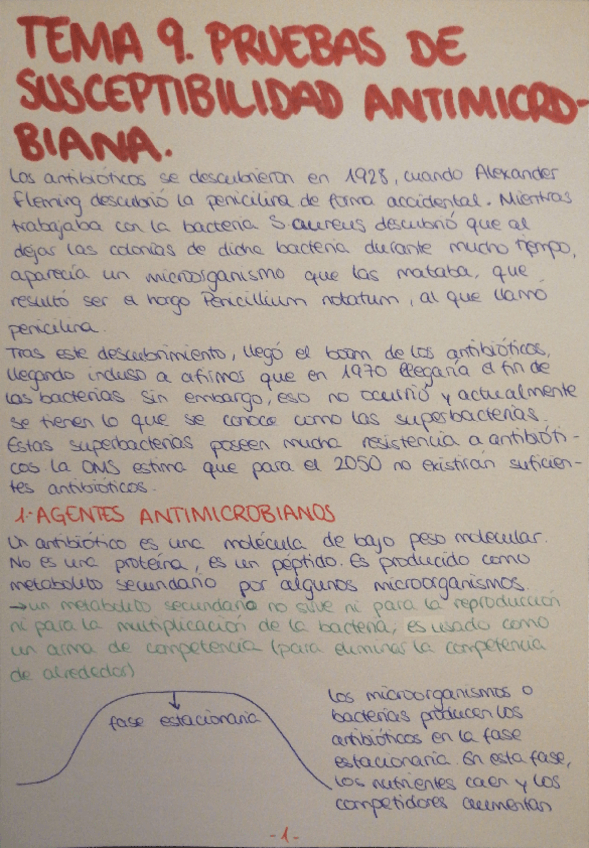 TEMA 9. PRUEBAS DE
SUSCEPTIBILIDAD ANTIMICRO-
BIANA.
Los antibióticos se descubrieron en 1928, cuando Alexander
Fleming descubrió la penicilina de forma accidental. Mientras
trabajaba con la bacteria S aureus descubrió que al
dejar las colonias de dicha bacteria durante mucho tiempo,
aparecía un microorganismo que las mataba, que
resultó ser el hongo Penicillium notatum, al que llamó
penicilina.
Tras este descubrimiento, llegó el boom de los antibióticos,
llegando incluso a afirmar que en 1970 llegaría el fin de
las bacterias. Sin embargo, eso no ocurrió y actualmente
se tienen lo que se conoce como las superbacterias.
Estas superbacterias poseen mucha resistencia a antibióti-
cos. La OMS estima que para el 2050 no existirán suficien-
tes antibióticos.
1.- AGENTES ANTIMICROBIANOS
Un antibiótico es una molécula de bajo peso molecular.
No es una proteína, es un péptido. Es producido como
metabolito secundario por algunos microorganismos.
→ un metabolito secundario no sirve ni para la reproducción
ni para la multiplicación de la bacteria, es usado como
un arma de competencia (para eliminar la competencia
de alrededor)
fase estacionaria
Los microorganismos o
bacterias producen los
antibióticos en la fase
estacionaria. En esta fase,
los nutrientes caen y los
competidores aumentan
-1-